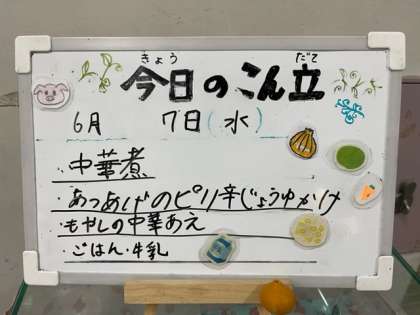 きょう だて
今日のこん立
6月 7日(水)
・中華煮
・あつあげのピリ辛じょうゆかけ
・もやしの中華あえ
・ごはん・牛乳